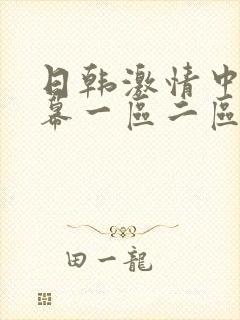 日韩激情中
幕一區二區
田一龍